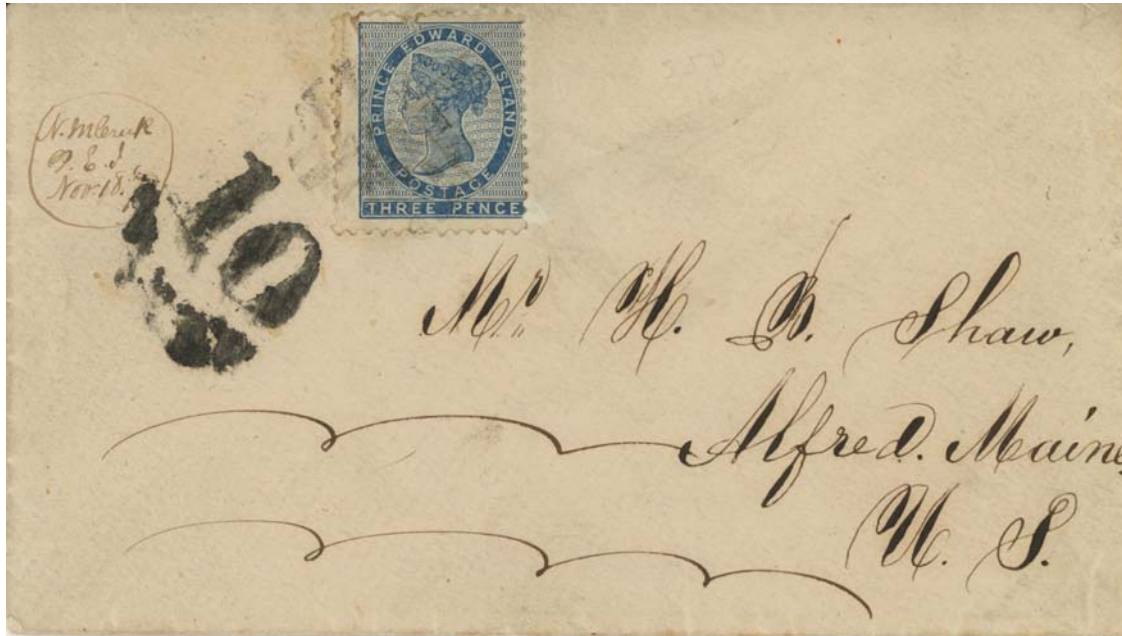 PRINCE EDWARD ISLAND
POSTAGE
THREE PENCE
P. E. I
Nov. 18.
10
Mr. H. B. Shaw,
Alfred. Maine,
U. S.